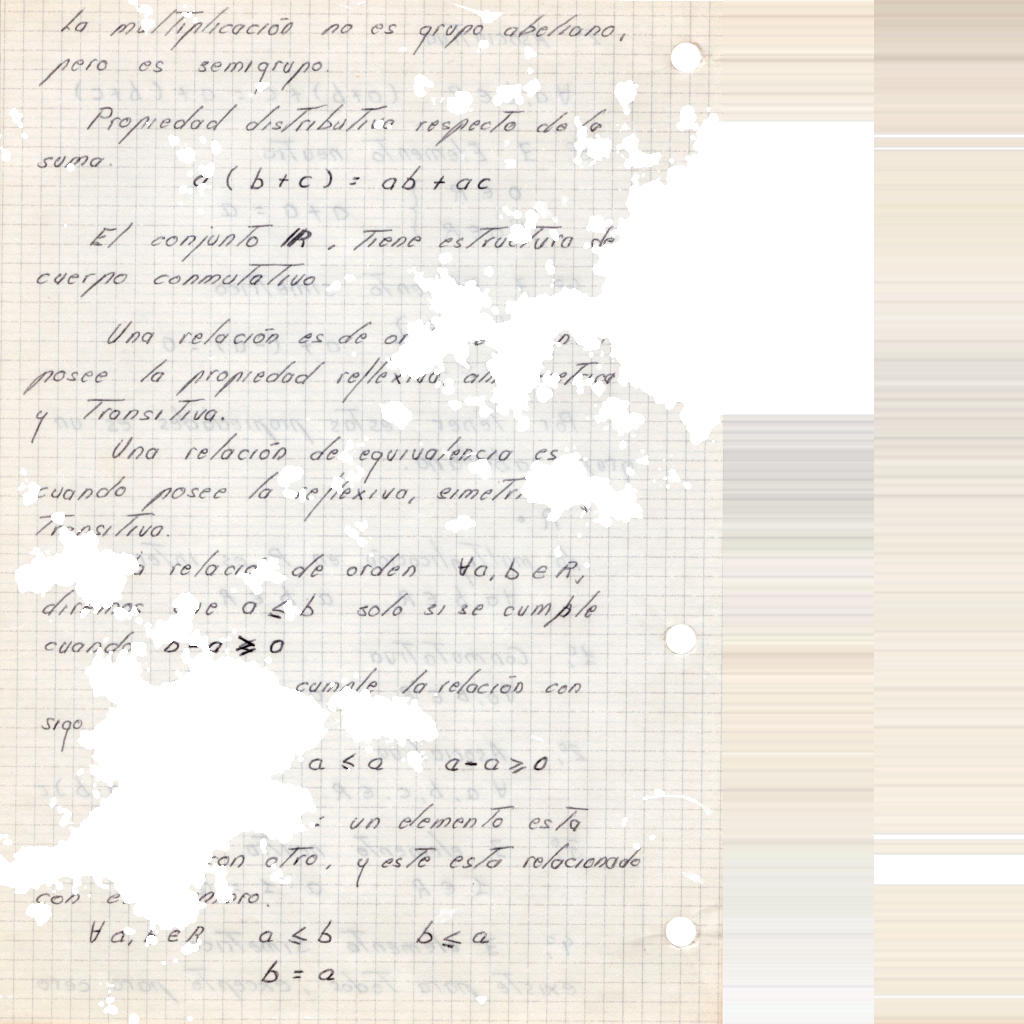 La multiplicación no es grupo abeliano,
pero es semigrupo.
Propiedad distributiva respecto de la
suma.
a ( b + c ) = ab + ac
El conjunto R, tiene estructura de
cuerpo conmutativo
Una relación es de
posee la propiedad reflexiva,
y Transitiva.
Una relación de equivalencia es
cuando posee la reflexiva,
Transitiva.
relación de orden ∀a, b ∈ R,
diremos que a ≤ b solo si se cumple
cuando b - a ≥ 0
cumple la relación con
sigo
a ≤ a a - a ≥ 0
: un elemento esta
con otro, y este esta relacionado
con
∀ a, b ∈ R a ≤ b b ≤ a
b = a